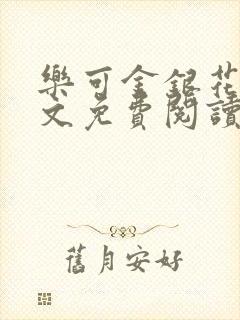 樂可金銀花
文免費閱讀
舊月安好